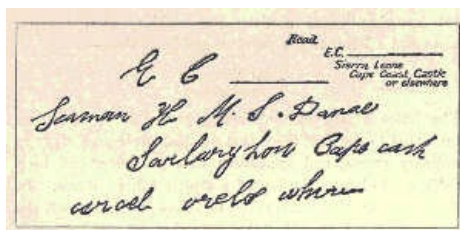 Read
E.C.
Sierra Leone
Cape Coast Castle
or elsewhere
E C
Seaman H. M. S. Danae
Sarlaryhon Cape cash
carcel orels where